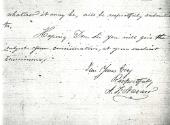 whatever it may be, will be respectfully submitted
to.
Hoping Dear Sir you will give the
subject your consideration, at your earliest
convenience,
I am Yours Very
Respectfully